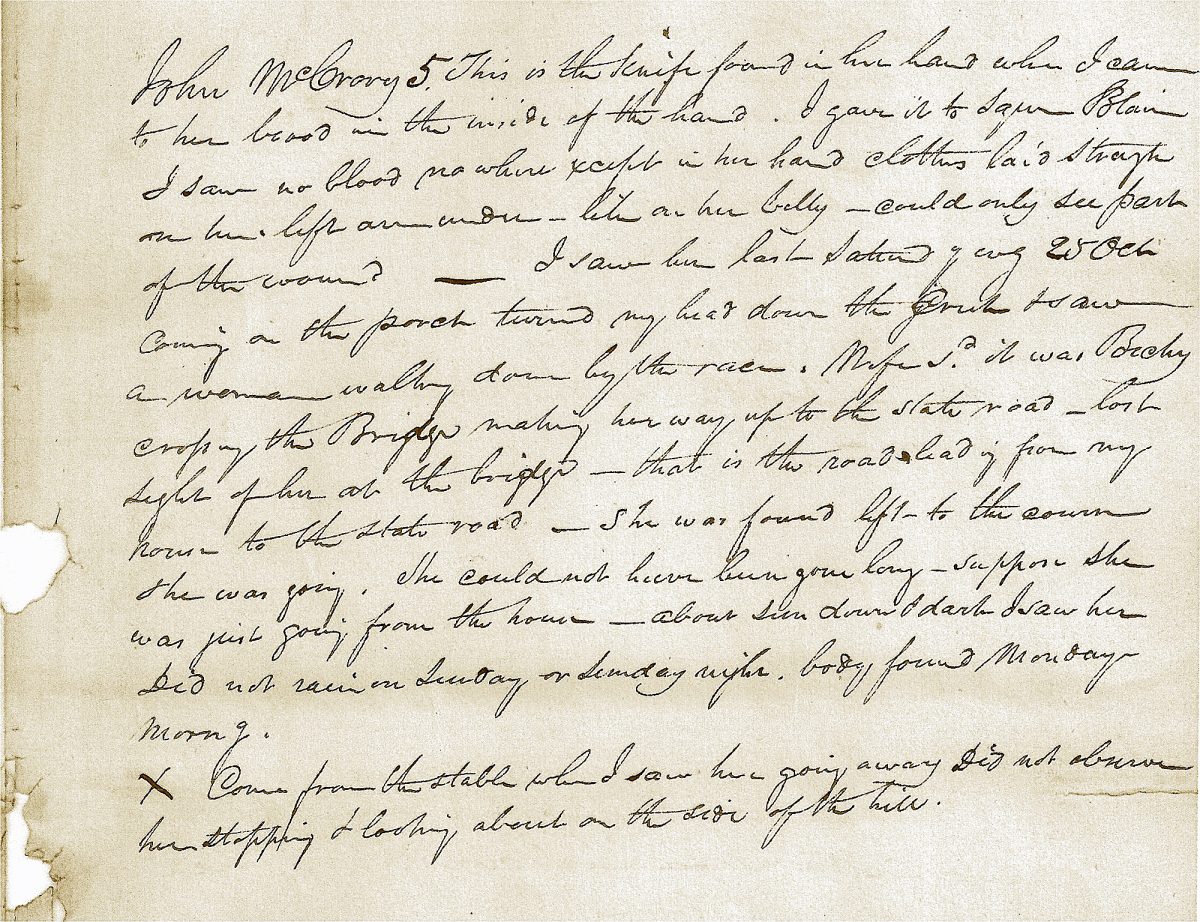 John McCrory 5. This is the knife found in her hand when I came
to her blood in the inside of the hand. I gave it to Squr Blain
I saw no blood nowhere xcept in her hand clothes laid streight
on her. left arm under – litt on her belly – could only see part
of the wound — I saw her last Satturdy evg 25 Oct
Coming on the porch turned my head down the Creek & saw
a woman walking down by the race. Wife sd. it was Beeky
crossing the Bridge making her way up to the state road – lost
sight of her at the bridge – that is the road leadig from my
house to the state road – She was found left to the course
she was going. She could not have been gone long – suppose she
was just going from the house – about sun down & dark I saw her
Did not rain on Sunday or Sunday night. body found Monday
morng.
X Come from the stable when I saw her going away Did not observe
her stopping & looking about on the side of the hill.